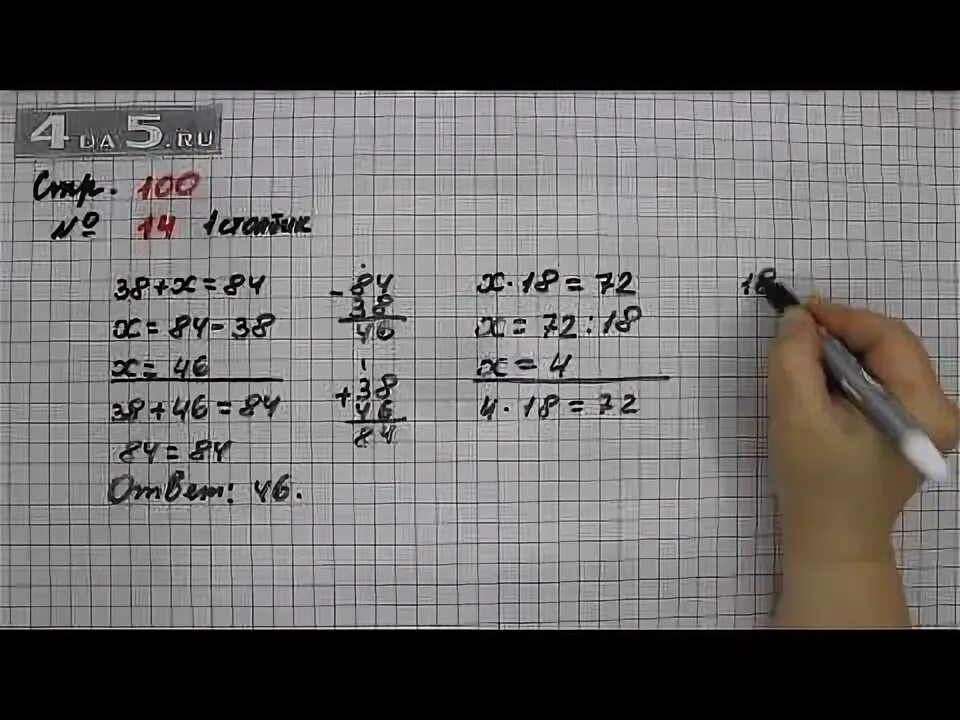 4 НА 5.RU
Стр. 100
№ 14 1 столбик
38+x=84
x=84-38
x=46
38+46=84
84=84
Ответ: 46.
-84
38
46
1
+38
46
84
x·18=72
x=72:18
x=4
4·18=72
18